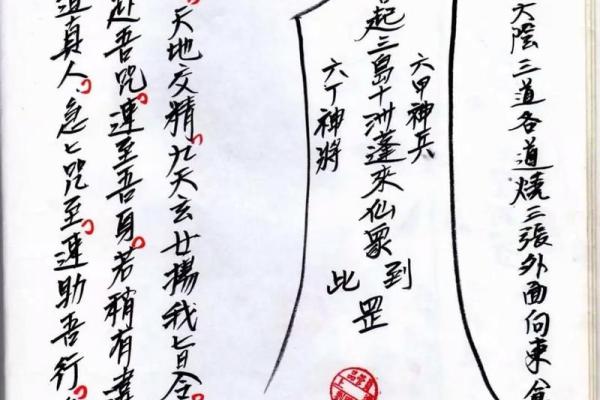 太陰三道各道燒三張外面向東
六甲神兵
起三島十洲蓬來仙眾到此罡
六丁神將
天地交精九天玄女揚我旨令
赴吾咒速至吾身若稍有違
道真人急七咒至速助吾行